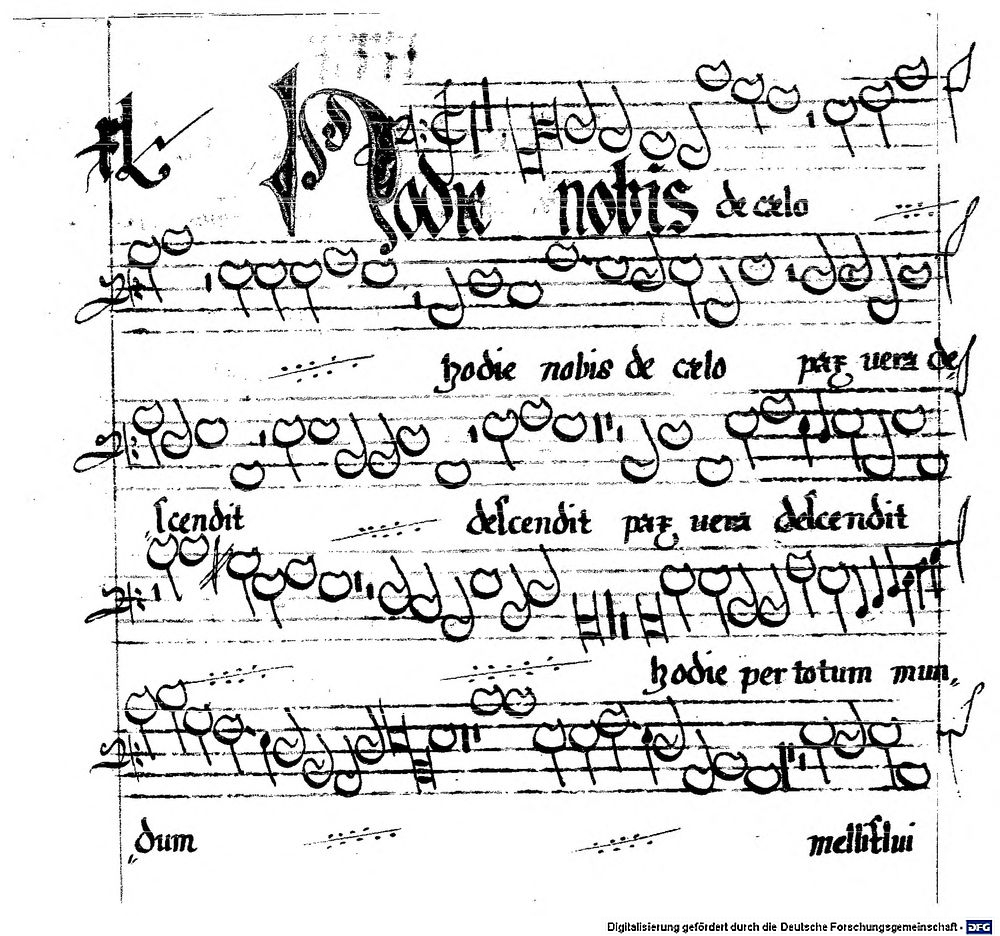 Hodie nobis de celo
hodie nobis de celo pax uera de
scendit descendit pax uera descendit
hodie per totum mun„
„dum melliflui
Digitalisierung gefördert durch die Deutsche Forschungsgemeinschaft - DFG